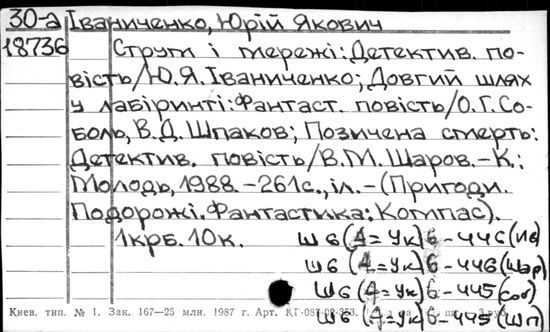 30-а Іваниченко, Юрій Якович
18736 Струм і мережі: Детектив. по-
вість/Ю.Я.Іваниченко; Довгий шлях
у лабіринті: Фантаст. повість/О.Г.Со-
боль, В.Д. Шпаков; Позичена смерть:
Детектив. повість/В.М. Шаров.-К.:
Молодь, 1988.-261с., іл.-(Пригоди.
Подорожі. Фантастика; Компас).
1крб.10к.
Ш6(4=Ук)6-446(Ів)
Ш6(4=Ук)6-446(Шар)
Ш6(4=Ук)6-445(Соб)
Киев. тип. № 1. Зак. 167—25 млн. 1987 г. Арт.
Ш6(4=Ук)6-445(Шп)